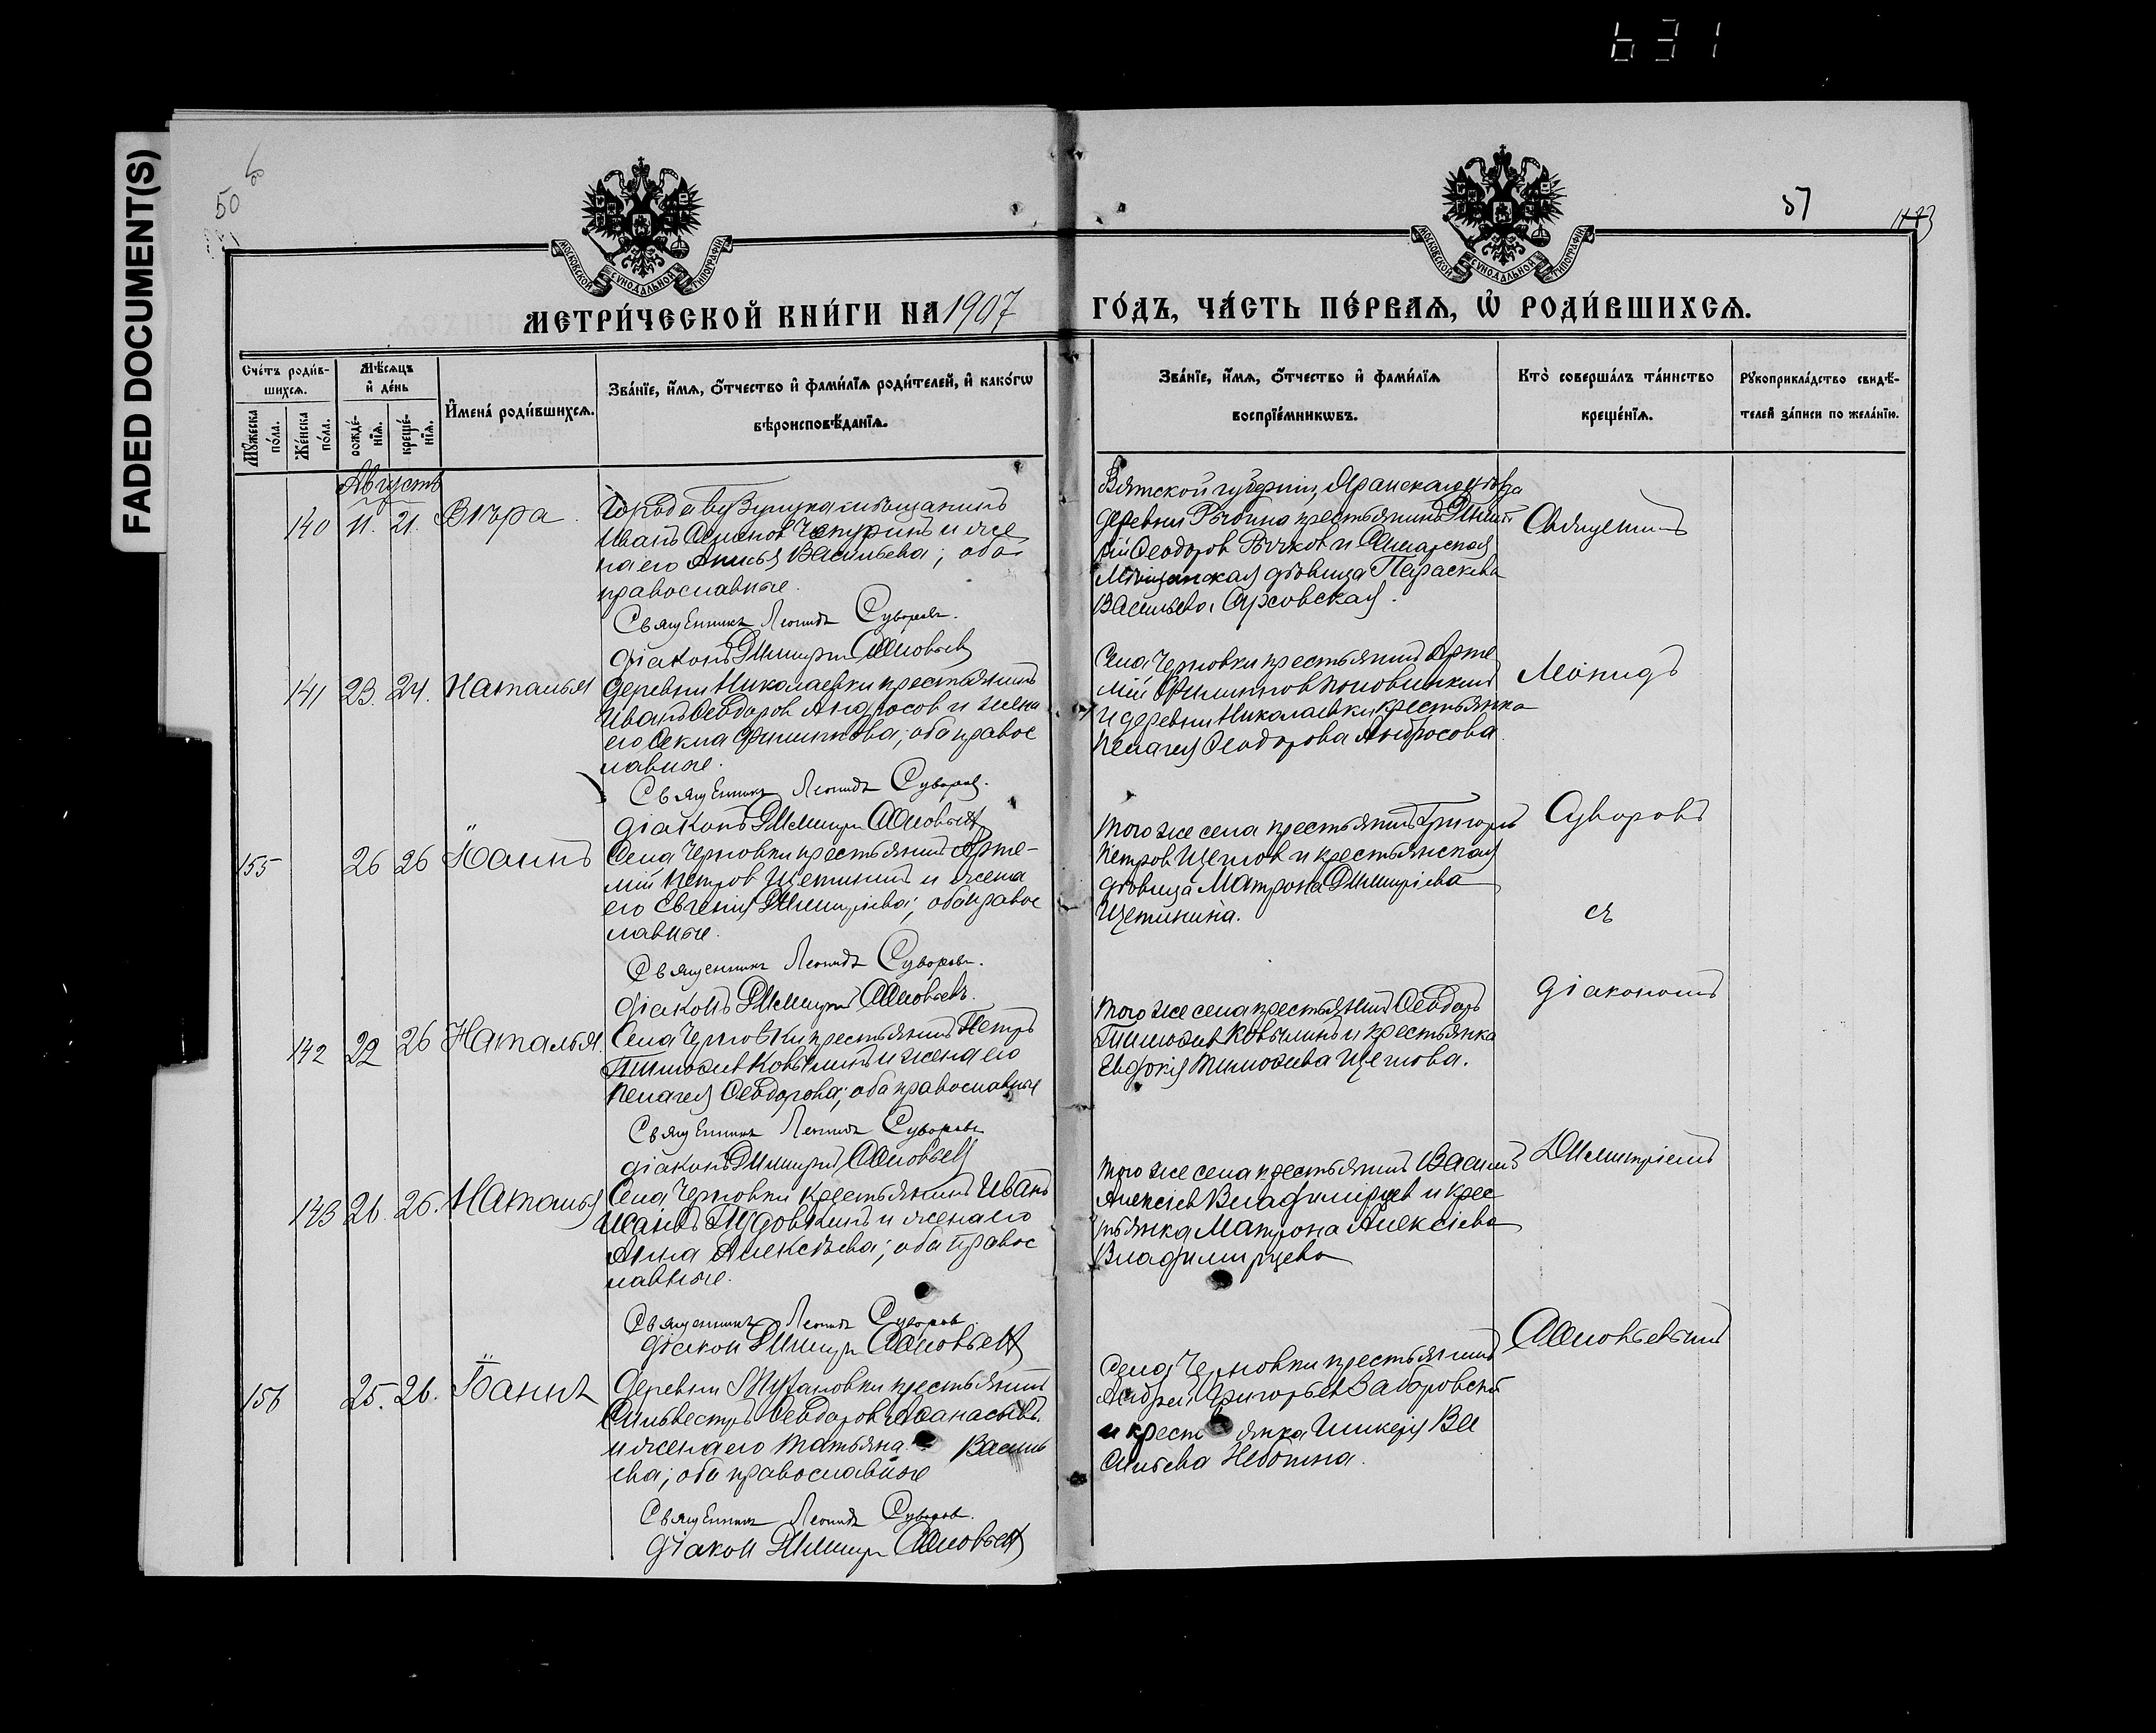 631
FADED DOCUMENT(S)
50
57
МОСКОВСКОЙ СѴНОДАЛЬНОЙ ТИПОГРАФІИ
МОСКОВСКОЙ СѴНОДАЛЬНОЙ ТИПОГРАФІИ
МЕТРИ́ЧЕСКОЙ КНИ́ГИ НА 1907
ГО́ДЪ, ЧА́СТЬ ПЕ́РВАѦ, Ѡ҆ РОДИ́ВШИХСѦ.
Сче́тъ роди́в-
шихсѧ.
Мꙋ́жеска по́ла.
Же́нска по́ла.
Мѣ́сѧцъ
и҆ де́нь
рожде́-
нїѧ.
креще́-
нїѧ.
И҆мена̀ роди́вшихсѧ.
Зва́нїе, и҆́мѧ, ѻ҆́тчество и҆ фами́лїѧ роди́телей, и҆ како́гѡ
вѣроисповѣ́данїѧ.
Зва́нїе, и҆́мѧ, ѻ҆́тчество и҆ фами́лїѧ
воспрїе́мникѡвъ.
Кто̀ соверша́лъ та́инство
креще́нїѧ.
Рꙋкоприкла́дство свидѣ́-
телей за́писи по жела́нїю.
Августъ
140 11. 21. Вѣра.
Города Бузулука мѣщанинъ
Иванъ Чепуринъ и же
на его Анисья Васильева; оба
православные.
Священникъ Леонидъ Суворовъ.
діаконъ Димитрій Соловьевъ
Вятской губерніи, Яранскаго уѣзда
деревни крестьянинъ Димит
рій Ѳеодоров Рычков и Самарская
Мѣщанская дѣвица Параскева
Васильева
Священникъ
141 23. 24. Наталья
деревни Николаевки крестьянинъ
Иванъ Ѳеодоров Андросов и жена
его Ѳекла Филиппова; оба правос
лавные.
Священникъ Леонидъ Суворовъ.
діаконъ Димитрій Соловьевъ
Села Черновки крестьянинъ Арте
мій Филиппов
и деревни Николаевки крестьянка
Пелагея Ѳеодорова Андросова.
Леонидъ
155 26 26 Іоаннъ
Села Черновки крестьянинъ Арте-
мій Петров Щетининъ и жена
его Евгенія Димитріева; оба правос
лавные.
Священникъ Леонидъ Суворовъ.
діаконъ Димитрій Соловьевъ.
Того же села крестьянинъ Григорій
Петров Щеглов и крестьянская
дѣвица Матрона Димитріева
Щетинина.
Суворовъ
съ
142 22 26 Наталья.
Села Черновки крестьянинъ Петръ
Тимоѳеев Ковылинъ и жена его
Пелагея Ѳеодорова; оба православные
Священникъ Леонидъ Суворовъ
діаконъ Димитрій Соловьевъ
Того же села крестьянинъ Ѳеодоръ
Тимоѳеев Ковылинъ и крестьянка
Евдокія Тимоѳеева Щеглова.
діакономъ
143 26. 26. Наталья
Села Черновки крестьянинъ Иванъ
и жена его
Анна Алексѣева; оба правос
лавные.
Священникъ Леонидъ Суворов
діакон Димитрій Соловьевъ
Того же села крестьянинъ Василій
Алексіев Владимірцев и крес
тьянка Матрона Алексіева
Владимирцева
Димитріемъ
156 25. 26. Іоаннъ
деревни крестьянинъ
Сильвестръ Ѳеодоров Аѳанасьевъ
и жена его Татьяна Василь
ева; оба православные
Священникъ Леонидъ Суворов.
діакон Димитрій Соловьевъ
Села Черновки крестьянинъ
Андрей Григорьев Заборовскій
и крестьянка Гликерія Ва
сильева
Соловьевымъ